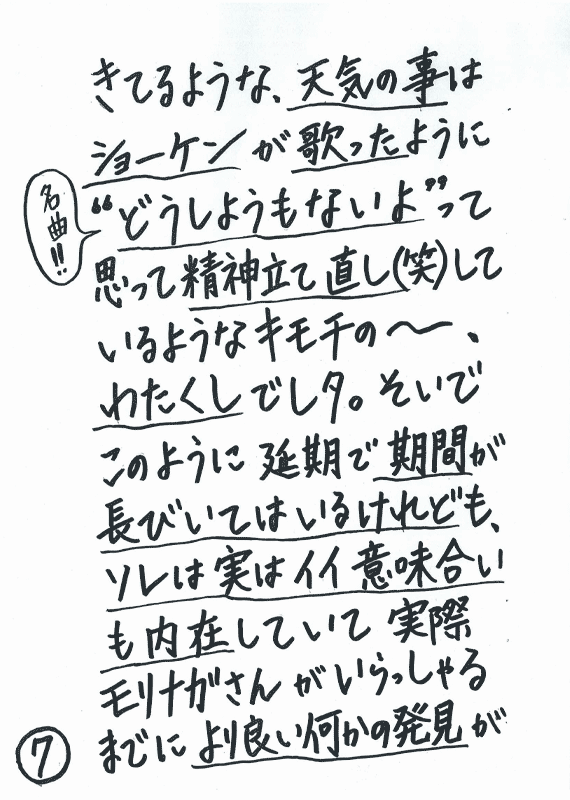 きてるような、天気の事は
ショーケンが歌ったように
名曲!!
“どうしようもないよ”って
思って精神立て直し(笑)して
いるようなキモチの〜、
わたくしでしタ。そいで
このように延期で期間が
長びいてはいるけれども、
ソレは実はイイ意味合い
も内在していて実際
モリナガさんがいらっしゃる
までにより良い何かの発見が
7